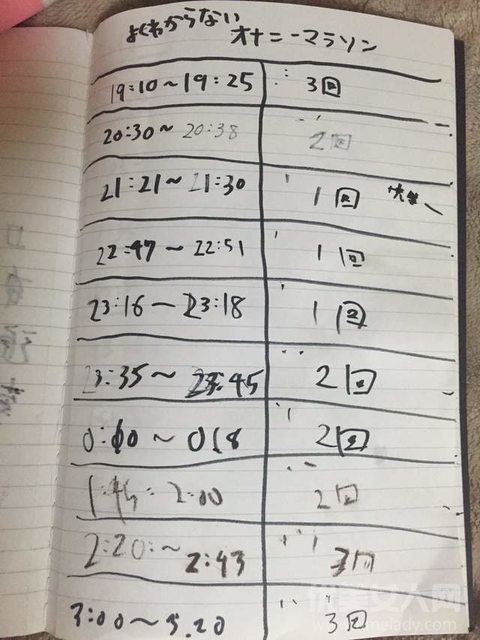 よくわからない
オナニーマラソン
19:10～19:25 3回
20:30～20:38 2回
21:21～21:30 1回
22:47～22:51 1回
23:16～23:18 1回
23:35～23:45 2回
0:10～018 2回
2:00 2回
2:20:～2:43 3回
3:00～5.20 3回